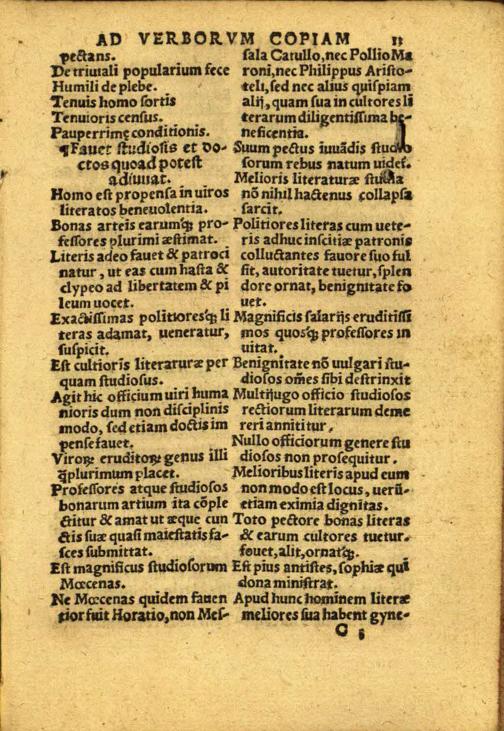 AD VERBORVM COPIAM 13
pectans.
De triuiali popularium fece
Humili de plebe.
Tenuis homo sortis
Tenuioris census.
Pauperrimę conditionis.
¶Fauet studiosis et do-
ctos quoad potest
adiuuat.
Homo est propensa in uiros
literatos beneuolentia.
Bonas arteis earumq́ȝ pro-
fessores plurimi æstimat.
Literis adeo fauet & patroci
natur, ut eas cum hasta &
clypeo ad libertatem & pi
leum uocet.
Exactissimas politioresq́ȝ li
teras adamat, ueneratur,
suspicit.
Est cultioris literaturæ per
quam studiosus.
Agit hic officium uiri huma
nioris dum non disciplinis
modo, sed etiam doctis im
pense fauet.
Viroꝝ eruditoꝝ genus illi
q̃plurimum placet.
Professores atque studiosos
bonarum artium ita cõple
ctitur & amat ut æque cun
ctis suæ quasi maiestatis fa-
sces submittat.
Est magnificus studiosorum
Mœcenas.
Ne Mœcenas quidem fauen
tior fuit Horatio, non Mes-
sala Catullo, nec Pollio Ma
roni, nec Philippus Aristo-
teli, sed nec alius quispiam
alij, quam sua in cultores li
terarum diligentissima be-
neficentia.
Suum pectus iuuãdis studio
sorum rebus natum uidet.
Melioris literaturæ studia
nõ nihil hactenus collapsa
sarcit.
Politiores literas cum uete-
ris adhuc inscitiæ patronis
colluctantes fauore suo ful
sit, autoritate tuetur, splen
dore ornat, benignitate fo
uet.
Magnificis salarijs eruditissi
mos quosq́ȝ professores in
uitat.
Benignitate nõ uulgari stu-
diosos om̃es sibi destrinxit
Multijugo officio studiosos
rectiorum literarum deme
reri annititur.
Nullo officiorum genere stu
diosos non prosequitur.
Melioribus literis apud eum
non modo est locus, uerũ-
etiam eximia dignitas.
Toto pectore bonas literas
& earum cultores tuetur.
fouet, alit, ornatq́ȝ.
Est pius antistes, sophiæ qui
dona ministrat.
Apud hunc hominem literæ
meliores sua habent gyne-
C 5